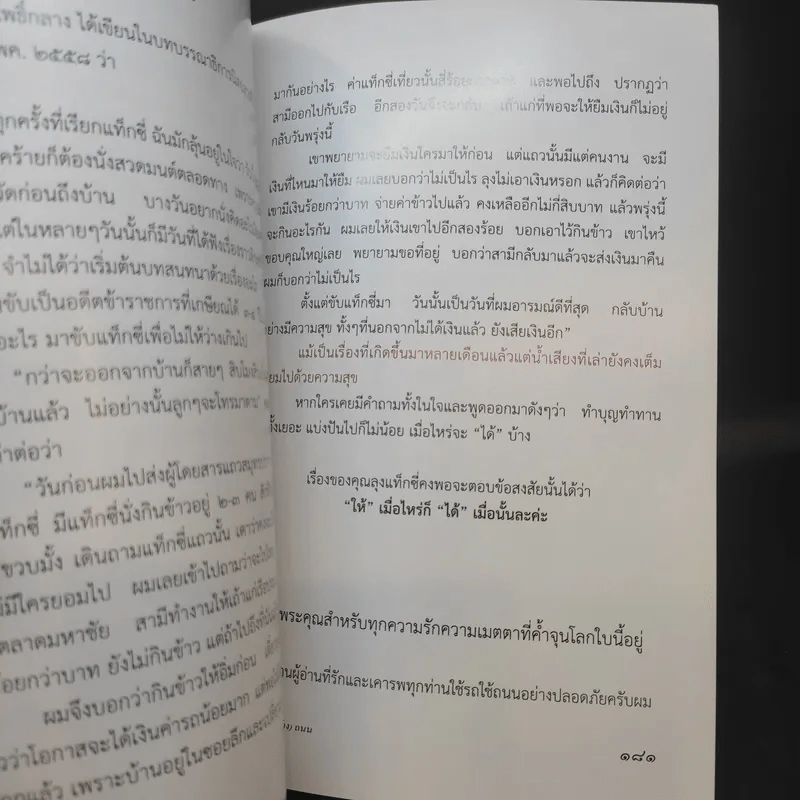 พธิ์กลาง ได้เขียนในบทบรรณาธิการ
พค. ๒๕๕๘ ว่า
ทุกครั้งที่เรียกแท็กซี่ ฉันมักลุ้นอยู่ในใจว่า
คร้ายก็ต้องนั่งสวดมนต์ตลอดทาง เพราะ
วัดก่อนถึงบ้าน บางวันอยากนั่งคิด
แต่ในหลายๆวันนั้นก็มีวันที่ได้ฟังเรื่องราว
จำไม่ได้ว่าเริ่มต้นบทสนทนาด้วยเรื่อง
งขับเป็นอดีตข้าราชการที่เกษียณได้ ๓-๔ ปี
อะไร มาขับแท็กซี่เพื่อไม่ให้ว่างเกินไป
“กว่าจะออกจากบ้านก็สายๆ สิบโมง
บ้านแล้ว ไม่อย่างนั้นลูกๆจะโทรมาตาม”
ล่าต่อว่า
“วันก่อนผมไปส่งผู้โดยสารแถวสมุทร
ท็กซี่ มีแท็กซี่นั่งกินข้าวอยู่ ๒-๓ คน
ขวบมั้ง เดินถามแท็กซี่แถวนั้น
ม่มีใครยอมไป ผมเลยเข้าไปถามว่าจะไปไหน
ตลาดมหาชัย สามีทำงานให้เถ้าแก่เรือ
ร้อยกว่าบาท ยังไม่กินข้าว แต่ถ้าไปถึงที่นั่น
ผมจึงบอกว่ากินข้าวให้อิ่มก่อน
ววว่าโอกาสจะได้เงินค่ารถน้อยมาก
แล้ว เพราะบ้านอยู่ในซอยลึกและ
มากันอย่างไร ค่าแท็กซี่เที่ยวนั้นสี่ร้อย และพอไปถึง ปรากฏว่า
สามีออกไปกับเรือ อีกสองวันจึงจะกลับ เถ้าแก่ที่พอจะให้ยืมเงินก็ไม่อยู่
กลับวันพรุ่งนี้
เขาพยายามจะยืมเงินใครมาให้ก่อน แต่แถวนั้นมีแต่คนงาน จะมี
เงินที่ไหนมาให้ยืม ผมเลยบอกว่าไม่เป็นไร ลุงไม่เอาเงินหรอก แล้วก็คิดต่อว่า
เขามีเงินร้อยกว่าบาท จ่ายค่าข้าวไปแล้ว คงเหลืออีกไม่กี่สิบบาท แล้วพรุ่งนี้
จะกินอะไรกัน ผมเลยให้เงินเขาไปอีกสองร้อย บอกเอาไว้กินข้าว เขาไหว้
ขอบคุณใหญ่เลย พยายามขอที่อยู่ บอกว่าสามีกลับมาแล้วจะส่งเงินมาคืน
ผมก็บอกว่าไม่เป็นไร
ตั้งแต่ขับแท็กซี่มา วันนั้นเป็นวันที่ผมอารมณ์ดีที่สุด กลับบ้าน
อย่างมีความสุข ทั้งๆที่นอกจากไม่ได้เงินแล้ว ยังเสียเงินอีก”
แม้เป็นเรื่องที่เกิดขึ้นมาหลายเดือนแล้วแต่น้ำเสียงที่เล่ายังคงเต็ม
ยมไปด้วยความสุข
หากใครเคยมีคำถามทั้งในใจและพูดออกมาดังๆว่า ทำบุญทำทาน
ตั้งเยอะ แบ่งปันไปก็ไม่น้อย เมื่อไหร่จะ “ได้” บ้าง
เรื่องของคุณลุงแท็กซี่คงพอจะตอบข้อสงสัยนั้นได้ว่า
“ให้” เมื่อไหร่ก็ “ได้” เมื่อนั้นละค่ะ
พระคุณสำหรับทุกความรักความเมตตาที่ค้ำจุนโลกใบนี้อยู่
านผู้อ่านที่รักและเคารพทุกท่านใช้รถใช้ถนนอย่างปลอดภัยครับผม
ถนน
๑๘๑